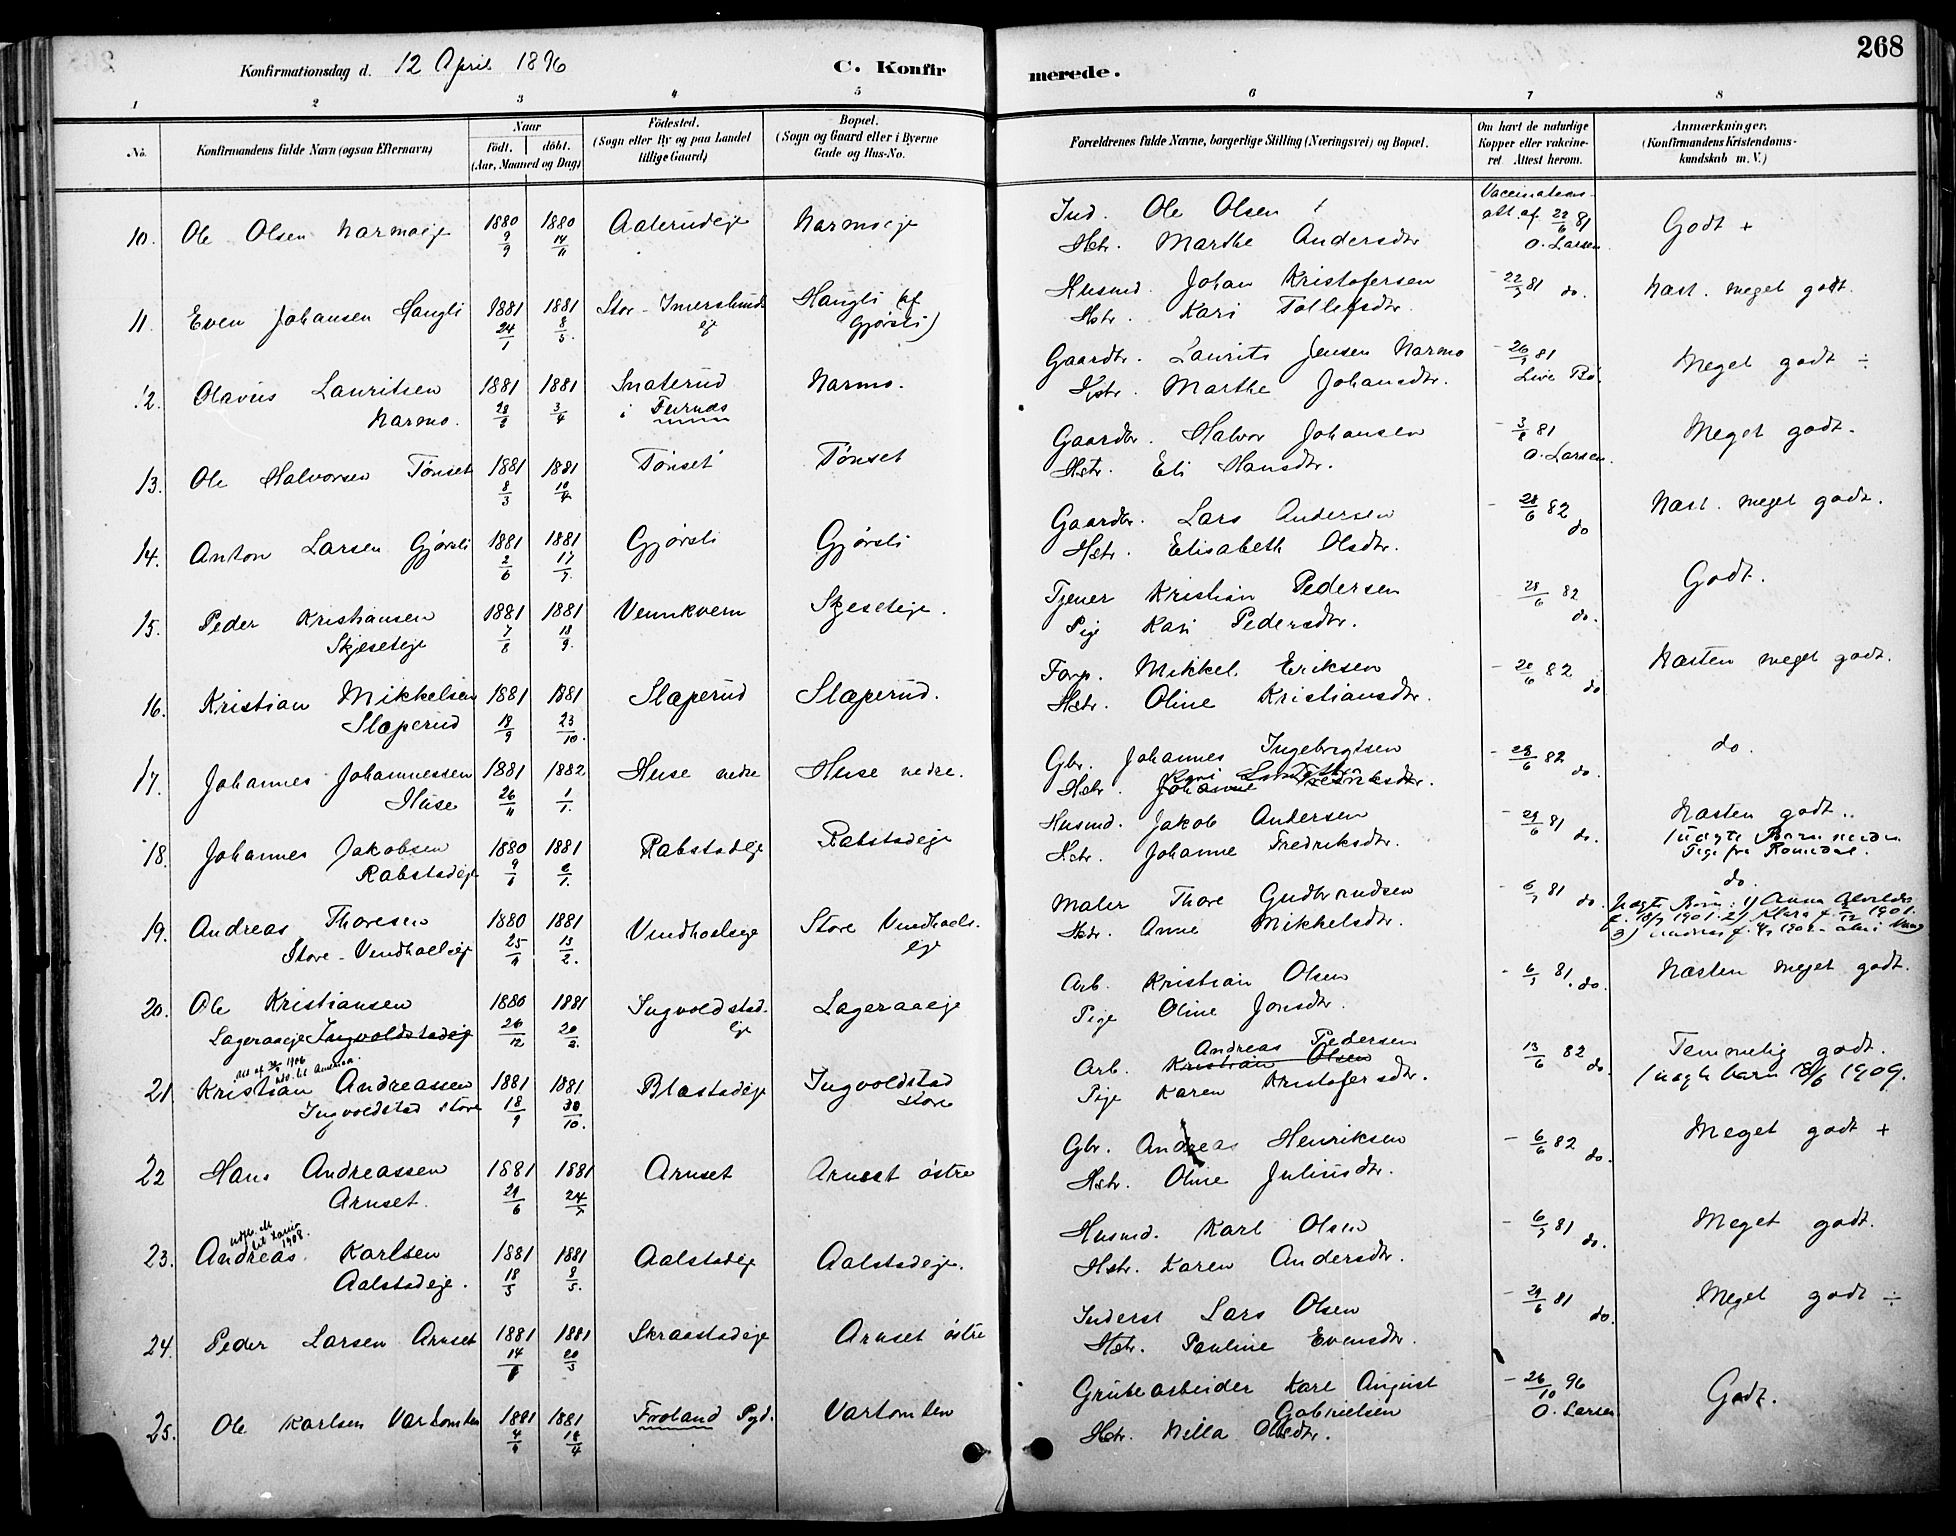 Konfirmationsdag d. 12 April 1896
C. Konfirmerede.
268
1 2 3 4 5 6 7 8
No.
Konfirmandens fulde Navn (ogsaa Efternavn)
Naar
födt. döbt.
(Aar, Maaned og Dag)
Födested.
(Sogn eller By og paa Landet
tillige Gaard)
Bopæl.
(Sogn og Gaard eller i Byerne
Gade og Hus-No.
Forældrenes fulde Navne, borgerlige Stilling (Næringsvei) og Bopæl.
Om havt de naturlige
Kopper eller vakcine-
ret Attest herom.
Anmærkninger.
(Konfirmandens Kristendoms-
kundskab m. V.)
10. Ole Olsen Narmoeje 1880 9/9 1880 14/11 Aalerudeje Narmoeje
Ind. Ole Olsen
Hstr. Marthe Andersdtr
Vaccinations-
att. af 22/6 81
O. Larsen
Godt +
11. Even Johansen Haugli 1881 24/1 1881 8/5 Stor-Imerslunds ej Haugli (af
Gjørsli)
Husmd. Johan Kristofersen
Hstr. Kari Tollefsdtr.
- 22/7 81 do.
Næst. meget godt.
12. Olavus Lauritsen
Narmo. 1881 28/2 1881 3/4 Snaterud
i Furnæs Narmo.
Gaardbr. Laurits Jensen Narmo
Hstr. Marthe Johansdtr.
- 26/7 81
Meget godt ÷
13. Ole Halvorsen Tønset 1881 8/3 1881 10/4 Tønset Tønset
Gaardbr. Halvor Johansen
Hstr. Eli Hansdtr.
- 3/8 81
O. Larsen.
Meget godt.
14. Anton Larsen Gjørsli 1881 2/6 1881 17/7 Gjørsli Gjørsli
Gaardbr. Lars Andersen
Hstr. Elisabeth Olsdtr.
- 28/6 82 do
Næst. meget godt.
15. Peder Kristiansen
Skjeseteje 1881 7/8 1881 18/9 Vennkvern Skjeseteje.
Tjener Kristian Pedersen
Pige Kari Pedersdtr.
28/6 82 do.
Godt.
16. Kristian Mikkelsen
Slaperud 1881 18/9 1881 23/10. Slaperud Slaperud.
Forp. Mikkel Eriksen
Hstr. Oline Kristiansdtr.
- 28/6 82 do
Næsten meget godt.
17. Johannes Johannessen
Huse 1881 26/11 1882 1/1. Huse nedre Huse nedre.
Gbr. Johannes Ingebrigtsen
Hstr. Kari Johanne Fredriksdtr.
- 28/6 82 do.
do.
18. Johannes Jakobsen
Rabstadeje 1880 9/6 1881 6/1. Rabstadeje Rabstadeje
Husmd. Jakob Andersen
Hstr. Johanne Fredriksdtr.
- 29/6 81 do.
Næsten godt.
Pige fra Romedal.
19. Andreas Thoresen
Store-Vendhoeleje 1880 25/11 1881 13/2. Vendhoelseje Store Vendhoels-
eje
Maler Thore Gudbrandsen
Hstr. Anne Mikkelsdtr.
- 6/7 81 do.
do.
20. Ole Kristiansen
Lageraaeje Ingvoldstadeje 1880 26/12 1881 20/2. Ingvoldstad-
eje Lageraaeje
Arb. Kristian Olsen
Pige Oline Jonsdtr.
- 6/7 81. do.
Næsten meget godt.
Att af 1906
udv. til Amerika.
21 Kristian Andreassen
Ingvoldstad store 1881 18/9 1881 30/10. Blæstadeje Ingvoldstad
store
Arb. Kristian Olsen Andreas Pedersen
Pige Karen Kristofersdtr.
13/6 82 do.
Temmelig godt.
22 Hans Andreassen
Arnset. 1881 29/6 1881 24/7 Arnset Arnset østre
Gbr. Andreas Henriksen
Hstr. Oline Juliusdtr.
- 6/6 82 do.
Meget godt +
1908.
23. Andreas Karlsen
Aalstadeje. 1881 18/3 1881 8/5. Aalstadeje Aalstadeje.
Husmd. Karl Olsen
Hstr. Karen Andersdtr.
- 6/7 81 do.
Meget godt.
24. Peder Larsen Arnset 1881 1881 20/3 Skraastadeje Arnset østre
Inderst Lars Olsen
Hstr. Pauline Evensdtr.
- 29/6 81 do.
Meget godt ÷
25. Ole Karlsen Vartomten 1881 1881 18/4 Froland Pgd. Vartomten
Grubearbeider Karl August
Gabrielsen
Hstr. Nilla Olsdtr.
- 26/10 96
O. Larsen
Godt.